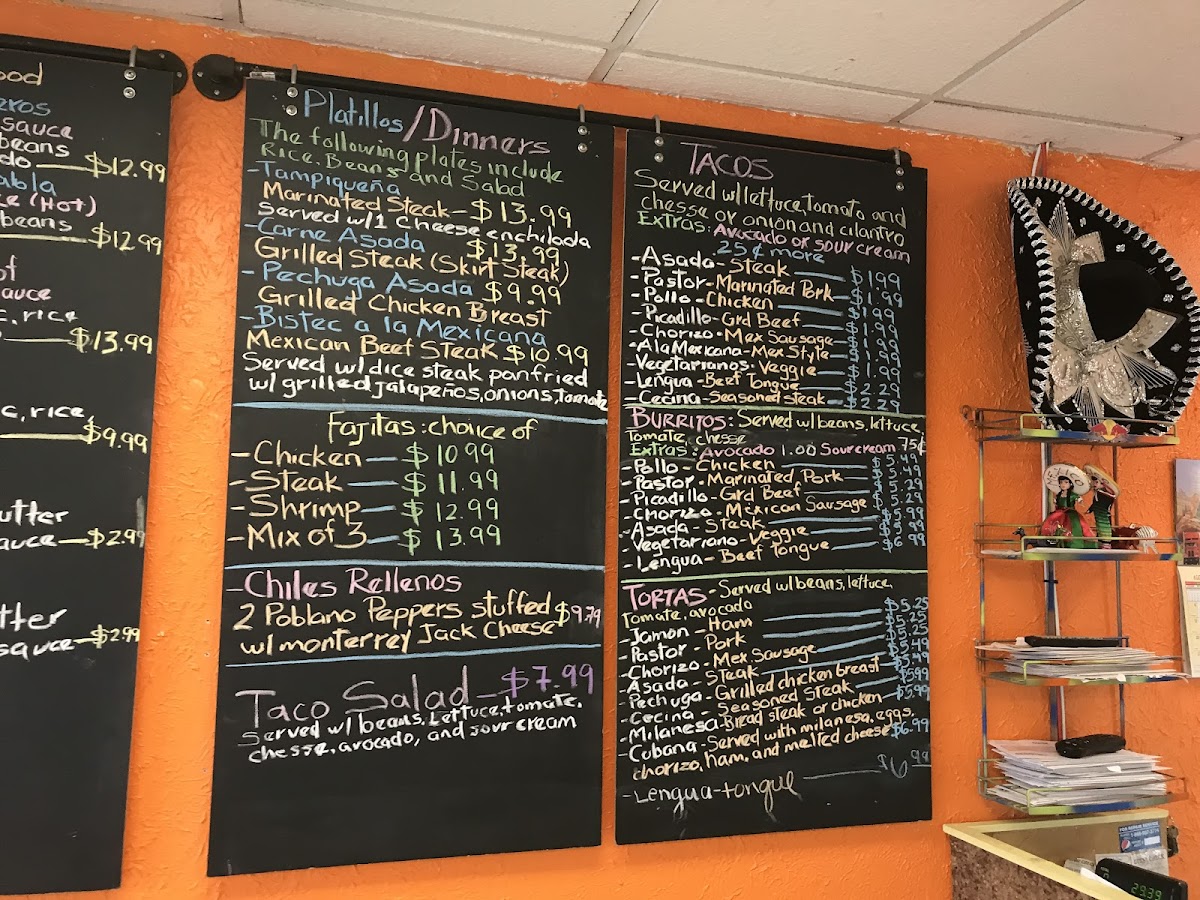 ood
eros
sauce
beans
do — $12.99
abla
ce (Hot)
beans — $12.99
of
sauce
c, rice
$13.99
c, rice,
$9.99
utter
auce — $2.99
tter
sauce — $2.99
Platillos/Dinners
The following plates include
Rice, Beans and Salad
-Tampiqueña
Marinated Steak - $13.99
Served w/1 Cheese enchilada
-Carne Asada $13.99
Grilled Steak (Skirt Steak)
-Pechuga Asada $9.99
Grilled Chicken Breast
-Bistec a la Mexicana
Mexican Beef Steak $10.99
Served w/ dice steak panfried
w/ grilled jalapeños, onions, tomate
Fajitas: choice of
-Chicken — $10.99
-Steak — $11.99
-Shrimp — $12.99
-Mix of 3 — $13.99
-Chiles Rellenos
2 Poblano Peppers stuffed $9.79
w/ monterrey Jack Cheese
Taco Salad - $7.99
Served w/ beans, Lettuce, tomate,
chesse, avocado, and sour cream
TACOS
Served w/ lettuce, tomato and
chesse or onion and cilantro
Extras: Avocado or sour cream
25¢ more
-Asada - Steak — $1.99
-Pastor - Marinated Pork — $1.99
-Pollo - Chicken — $1.99
-Picadillo - Grd Beef — $1.99
-Chorizo - Mex Sausage — $1.99
-Ala Mexicana - Mex Style — $1.99
-Vegetarianos - Veggie — $1.99
-Lengua - Beef Tongue — $2.29
-Cecina - Seasoned steak — $2.29
BURRITOS: Served w/ beans, lettuce,
Tomate, chesse
Extras: Avocado 1.00 Sour cream 75¢
-Pollo - Chicken — $5.49
-Pastor - Marinated Pork — $5.49
-Picadillo - Grd Beef — $5.29
-Chorizo - Mexican Sausage — $5.29
-Asada - Steak — $5.99
-Vegetariano - Veggie — $5.99
-Lengua - Beef Tongue — $6.99
TORTAS - Served w/ beans, lettuce,
Tomate, avocado
-Jamon - Ham — $5.25
-Pastor - Pork — $5.25
-Chorizo - Mex Sausage — $5.25
-Asada - Steak — $5.49
-Pechuga - Grilled chicken breast $5.49
-Cecina - Seasoned Steak — $5.99
-Milanesa - Bread steak or chicken $5.99
-Cubana - Served with milanesa, eggs,
chorizo, ham, and melted cheese $6.99
-Lengua - tongue — $6.99
29.39